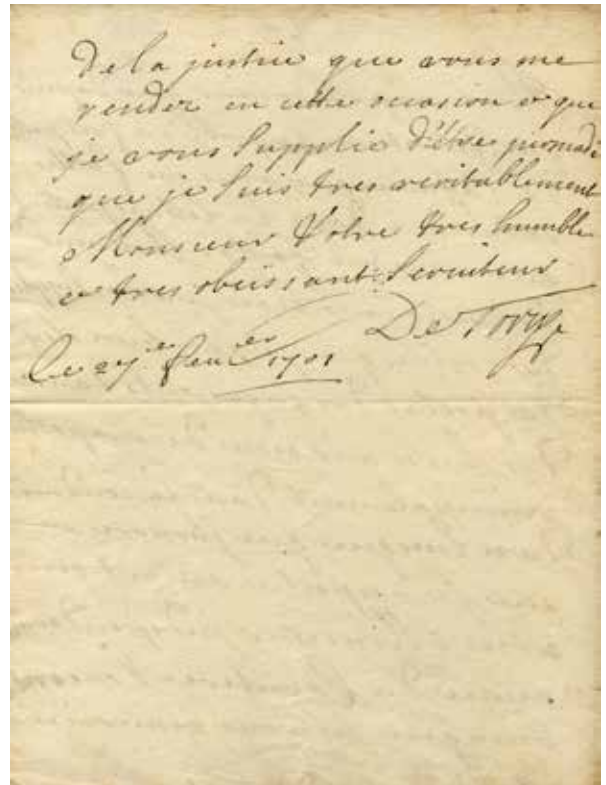 De la justice que vous me
rendez en cette occasion et que
je vous supplie d'être persuadé
que je suis tres veritablement
Monsieur Votre tres humble
et tres obeissant serviteur
De Torcy
le 27e feuer 1701